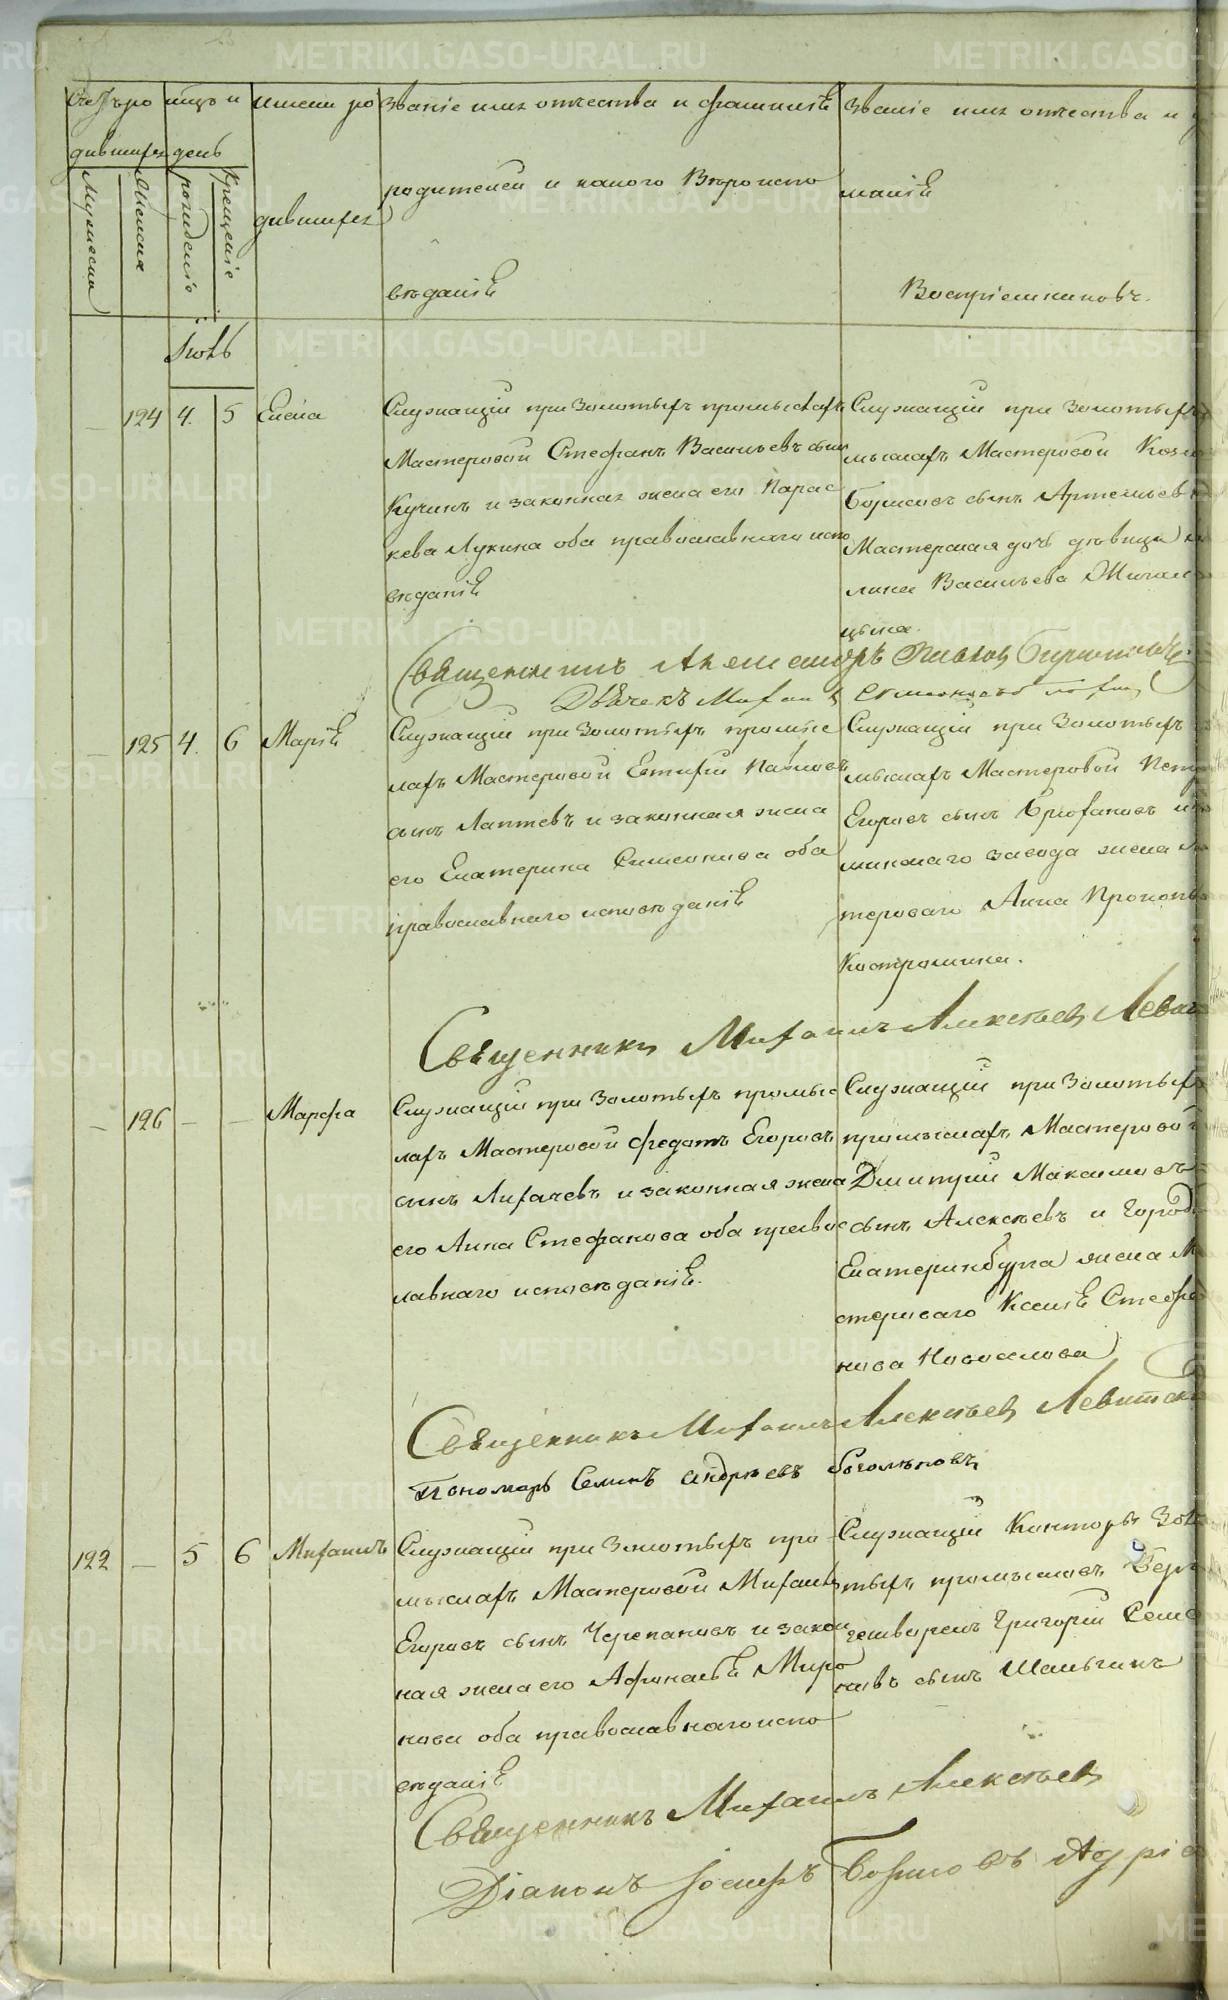 Счетъ ро
дившихся
Мужеска
Женска
мѣсяцъ и
день
рожденіе
Крещеніе
имена ро
дившихся
Званіе имя отчества и фамиліѣ
родителей и какого Вѣроиспо
вѣданіѣ
Званіе имя отчества и
миліѣ
Воспріемниковъ.
Іюль
124 4. 5 Елена
Служащій при Золотыхъ промыслахъ
Мастеровой Стефанъ Васильевъ сынъ
Кучинъ и законная жена его Парас
кева Лукина оба православнаго испо
вѣданіѣ
Служащій при Золотыхъ
мыслахъ Мастеровой
Борисовъ сынъ Артемьевъ
Мастерская дочь дѣвица
лина Васильева
цына.
Священникъ Александръ Павловъ Бирюковъ.
125 4. 6 Маріѣ
Служащій при Золотыхъ промыс
лахъ Мастеровой Евтифій Павловъ
сынъ Лаптевъ и законная жена
его Екатерина Симеонова оба
православнаго исповѣданіѣ
Служащій при Золотыхъ
мыслахъ Мастеровой Петръ
Егоровъ сынъ
минскаго завода жена
тероваго Анна
Костромина.
Священникъ Михаилъ Алексѣевъ
126 – – Марфа
Служащій при Золотыхъ промыс
лахъ Мастеровой Федотъ Егоровъ
сынъ Лихачевъ и законная жена
его Анна Стефанова оба правос
лавнаго исповѣданіѣ.
Служащій при Золотыхъ
промыслахъ Мастеровой
Дмитрій Максимовъ
сынъ Алексѣевъ и Города
Екатеринбурга жена
стероваго Ксеніѣ Стефа
нова Новоселова
Священникъ Михаилъ Алексѣевъ
Пономарь Семенъ Андреевъ Боголѣповъ
122 – 5 6 Михаилъ
Служащій при Золотыхъ про
мыслахъ Мастеровой Михаилъ
Егоровъ сынъ Черепановъ и закон
ная жена его Афонасьѣ Миро
нова оба православнаго испо
вѣданіѣ
Служащій Конторы
тыхъ промысловъ
гешворенъ Григорій Семе
новъ сынъ Шалыгинъ
Священникъ Михаилъ Алексѣевъ
Діаконъ Іосифъ
METRIKI.GASO-URAL.RU